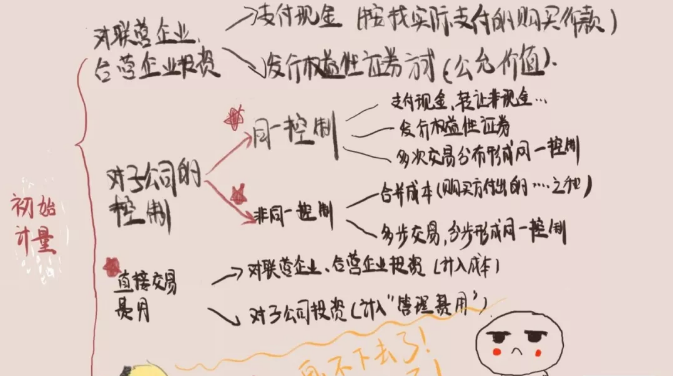 初始
计量
对联营企业、
合营企业投资
支付现金（按找实际支付的购买价款）
发行权益性证券方式（公允价值）.
对子公司的
控制
同一控制
支付现金，转让非现金…
发行权益性证券
多次交易分布形成同一控制
非同一控制
合并成本（购买方付出的……之和）
多步交易，分步形成同一控制
直接交易
费用
对联营企业、合营企业投资（计入成本）
对子公司投资（计入“管理费用”）
不下去了！